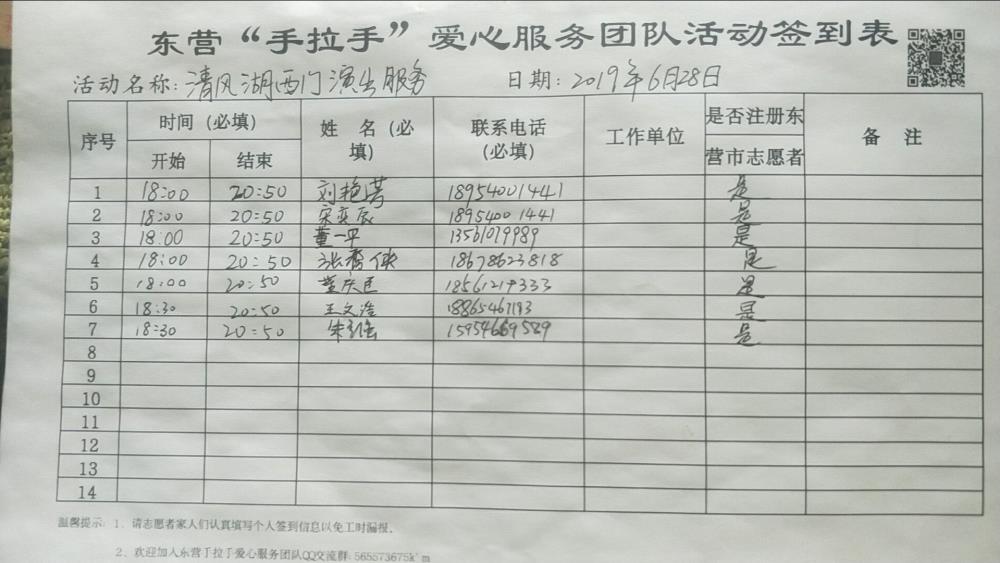 东营“手拉手”爱心服务团队活动签到表
活动名称:清风湖西门演出服务 日期:2019年6月28日
序号 时间(必填) 姓 名(必填) 联系电话(必填) 工作单位 是否注册东营市志愿者 备 注
开始 结束
1 18:00 20:50 刘艳 18954001441 是
2 18:00 20:50 宋奕辰 18954001441 是
3 18:00 20:50 董一平 13561079989 是
4 18:00 20:50 张 侠 18678623818 是
5 18:00 20:50 董庆 18561219333 是
6 18:30 20:50 王文 18865467193 是
7 18:30 20:50 朱 15954669589 是
8
9
10
11
12
13
14
温馨提示: 1、请志愿者家人们认真填写个人签到信息以免工时漏报。
2、欢迎加入东营手拉手爱心服务团队QQ交流群:565573675k'm